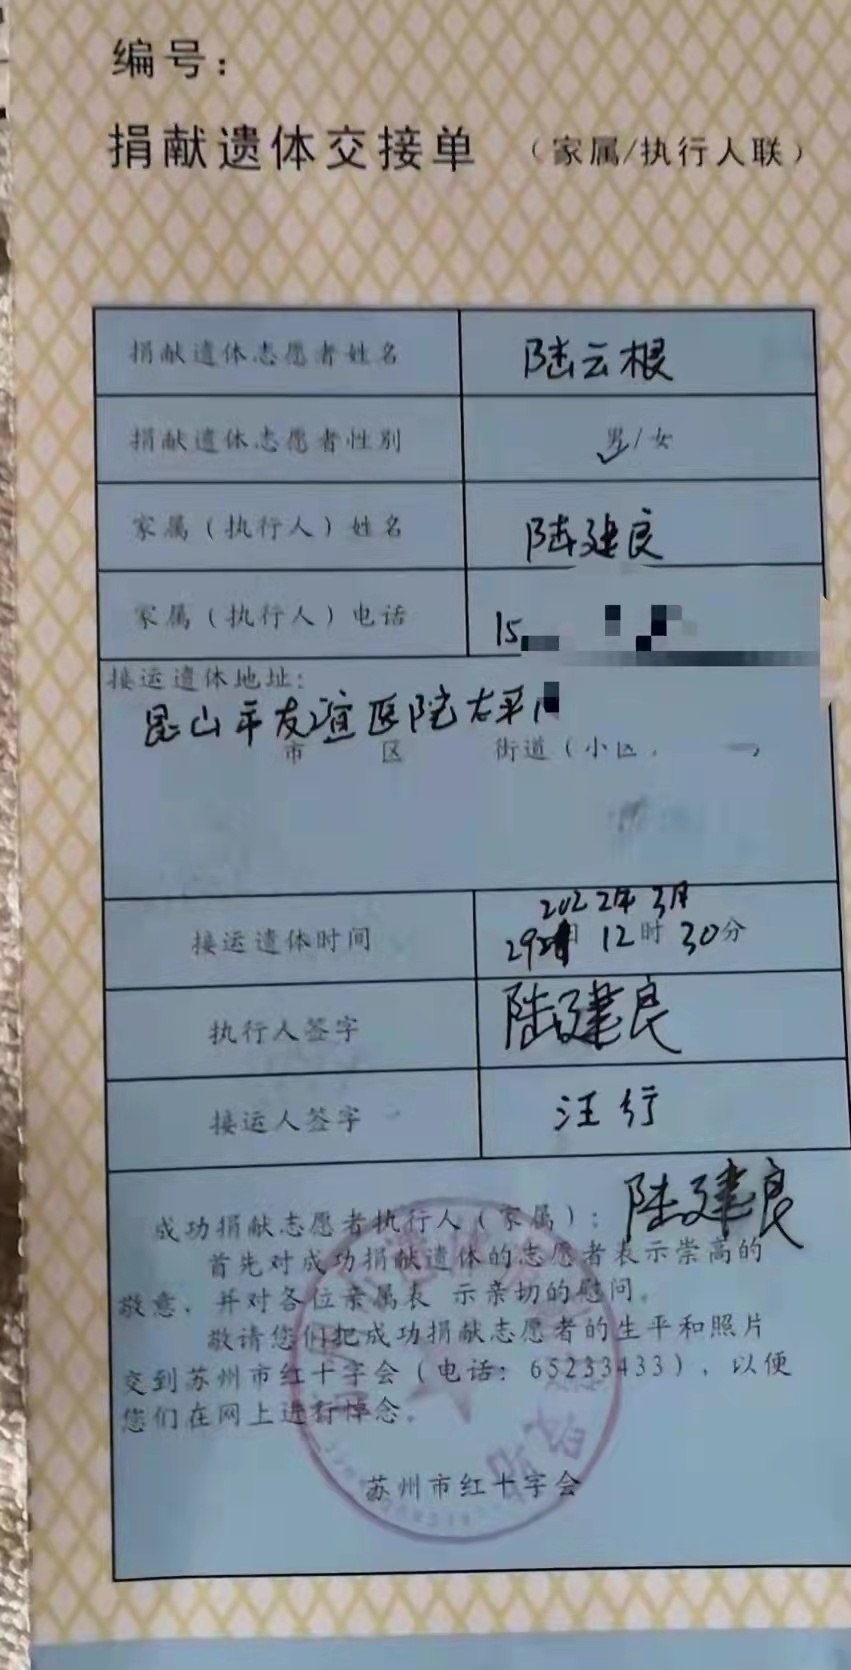 编号：
捐献遗体交接单 （家属/执行人联）
捐献遗体志愿者姓名 陆云根
捐献遗体志愿者性别 男/女
家属（执行人）姓名 陆建良
家属（执行人）电话 15
接运遗体地址：
昆山市友谊医院太平
市 区 街道（小区
接运遗体时间 2022年3月
29日 12时30分
执行人签字 陆建良
接运人签字 汪行
成功捐献志愿者执行人（家属）：陆建良
首先对成功捐献遗体的志愿者表示崇高的
敬意，并对各位亲属表 示亲切的慰问。
敬请您们把成功捐献志愿者的生平和照片
交到苏州市红十字会（电话：65233433），以便
您们在网上进行悼念。
苏州市红十字会